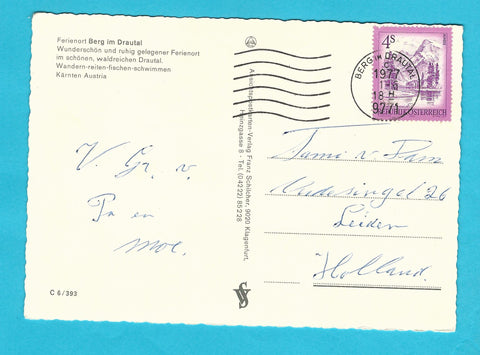 Ferienort Berg im Drautal
Wunderschön und ruhig gelegener Ferienort
im schönen, waldreichen Drautal.
Wandern-reiten-fischen-schwimmen
Kärnten Austria
V. Gr. v.
Pa en
moe.
C 6/393
Ansichtspostkarten-Verlag Franz Schilcher, 9020 Klagenfurt,
Heinzgasse 8 · Tel. (04222) 85228
4S
REPUBLIK ÖSTERREICH
BERG IM DRAUTAL
1977
18
9771
Fami v Dam
26
Leiden
Holland.